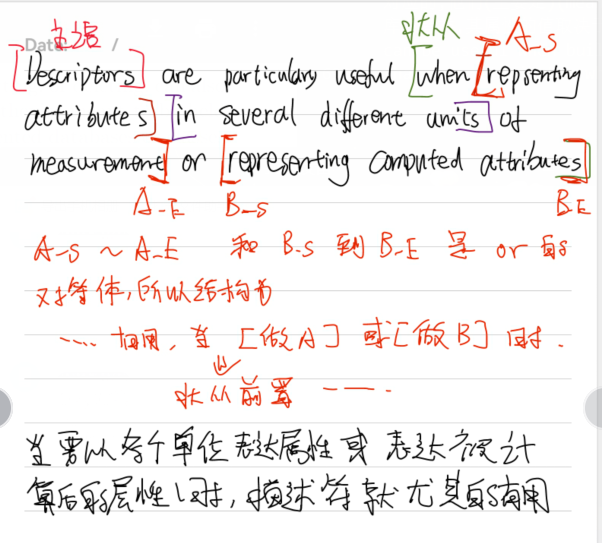 主语
状从
A_S
Date: /
[Descriptors] are particulary useful [when [repsenting
attributes] [in several different units] of
measurement] or [representing computed attributes]
A_E B_S B_E
A_S ~ A_E 和 B_S 到 B_E 是 or 的
对等体,所以结构为
..... 有用,当 [做A] 或 [做B] 时.
状从前置 ——.
当要以多个单位表达属性或表达被计
算后的属性时,描述符就尤其的有用